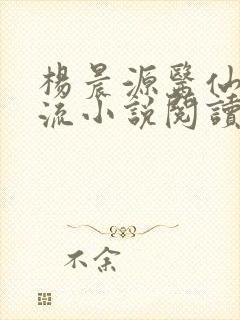 楊晨源醫仙
流小說閱讀
不余